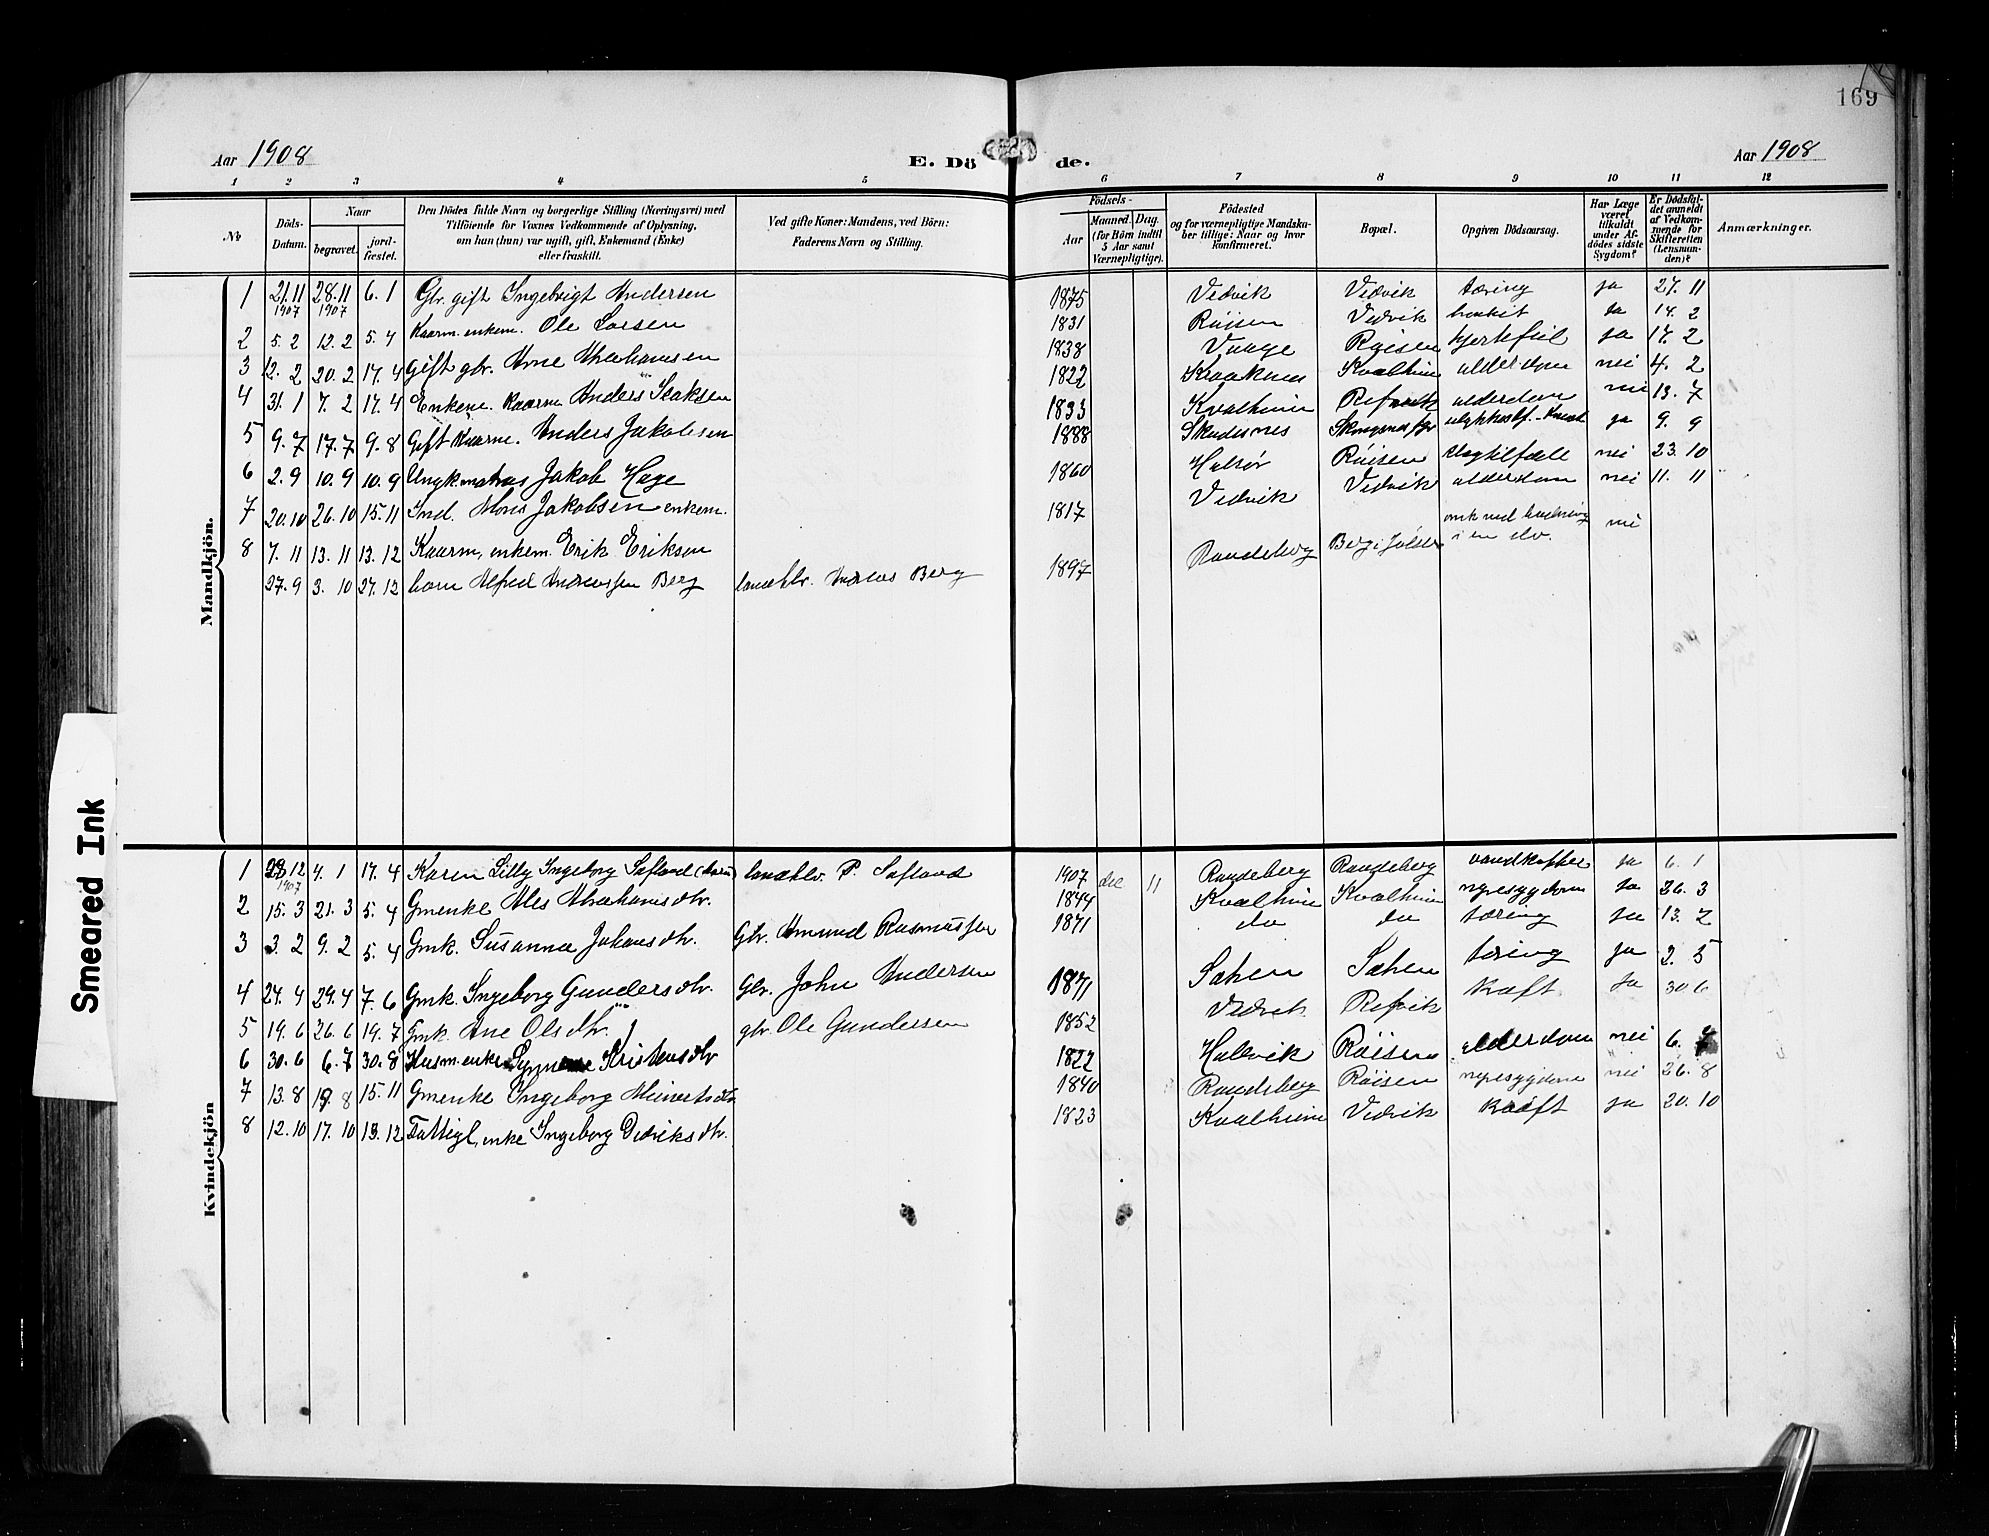 169
Aar 1908
E. Dö de.
Aar 1908
1 2 3 4 5 6 7 8 9 10 11 12
No
Döds-
Datum.
Naar
begravet.
jord-
fæstet.
Den Dödes fulde Navn og borgerlige Stilling (Næringsvei) med
Tilföiende for Voxnes Vedkommende af Oplysning,
om han (hun) var ugift, gift, Enkemand (Enke)
eller fraskilt.
Ved gifte Koner: Mandens, ved Börn:
Faderens Navn og Stilling.
Födsels-
Aar
Maaned. Dag.
(for Börn indtil
5 Aar samt
Værnepligtige).
Födested
og for værnepligtige Mandska-
ber tillige: Naar og hvor
konfirmeret.
Bopæl.
Opgiven Dödsaarsag.
Har Læge
været
tilkaldt
under Af-
dödes sidste
Sygdom?
Er Dödsfal-
det anmeldt
af Vedkom-
mende for
Skifteretten
(Lensman-
den)?
Anmærkninger.
Mandkjön.
1 21.11 1907 28.11 1907 6.1 Gbr. gift Ingebrigt Andersen 1875 Vedvik Vedvik tæring ja 27.11
2 5.2 12.2 5.4 Kaarm. enkem. Ole Larsen 1831 Röisen Vedvik ja 14.2
3 12.2 20.2 17.4 Gift gbr. Arne Abrahamsen 1838 Vaage Röisen hjertefeil ja 17.2
4 31.1 7.2 17.4 Enkem. kaarm. Anders Isaksen 1822 Kraaknes Kvalheim alderdom nei 4.2
5 9.7 17.7 9.8 Gift kaarm. Anders Jakobsen 1833 Kvalheim Refvik alderdom nei 13.7
6 2.9 10.9 10.9 Ungk. matros Jakob Hage 1888 Skudesnes ja 9.9
7 20.10 26.10 15.11 Ind. Mons Jakobsen enkem. 1860 Halsör Röisen slagtilfælde nei 23.10
8 7.11 13.11 13.12 Kaarm, enkem. Erik Eriksen 1817 Vedvik Vedvik alderdom nei 11.11
27.9 3.10 27.12 barn Alfred Andreassen Berg landhlr. Andreas Berg 1897 Raudeberg Berg i Jölster omk ved badning i en elv. nei
Smeared Ink
Kvindekjön
1 28.12 1907 4.1 17.4 Karen Lilly Ingeborg Sæfland landhlr. P. Sæfland 1907 dec 11 Raudeberg Raudeberg ja 6.1
2 15.3 21.3 5.4 Gmenke Ales Abrahamsdtr. 1844 Kvalheim Kvalheim nyresygdom ja 26.3
3 3.2 9.2 5.4 Gmk. Susanna Johansdtr. Gbr. Amund Rasmussen 1871 do do tæring ja 13.2
4 24.4 29.4 7.6 Gmk. Ingeborg Gundersdtr. Gbr. John Andersen 1871 Sæten Sæten tæring ja 2.5
5 19.6 26.6 19.7 Gmk. Ane Olsdtr. gbr. Ole Gundersen 1852 Vedvik Refvik kræft ja 30.6
6 30.6 6.7 30.8 Husm. enke Kristensdtr 1822 Halvik Röisen alderdom nei 6.7
7 13.8 19.8 15.11 Gmenke Ingeborg Meinertsdtr 1840 Raudeberg Röisen nyresygdom nei 26.8
8 12.10 17.10 13.12 Fattigl. enke Ingeborg Didriksdtr. 1823 Kvalheim Vedvik kræft ja 20.10